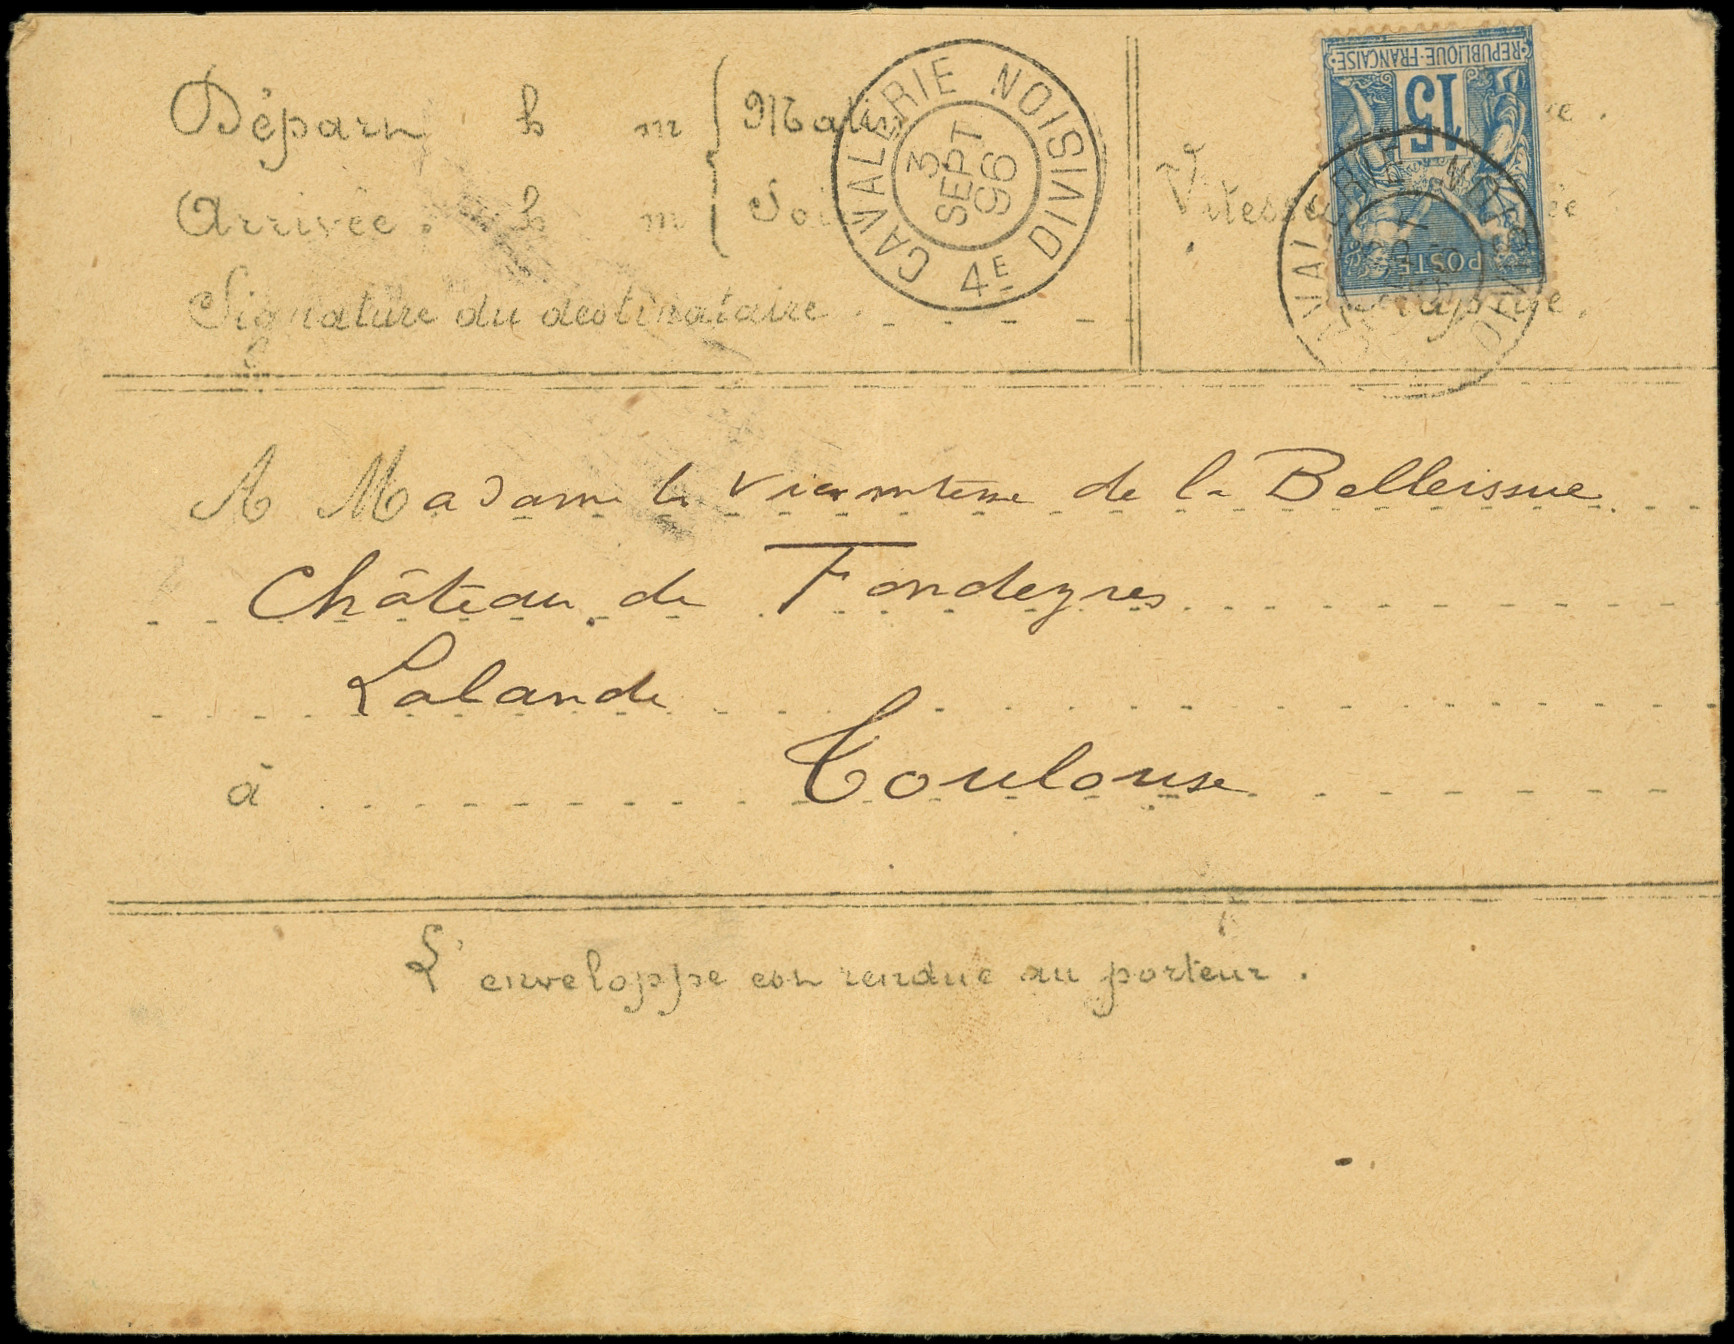 Départ h m Matin
Arrivée. h m Soir
Signature du destinataire.
Vitesse
rapide.
CAVALERIE NOISIVID 4E
3
SEPT
96
REPUBLIQUE FRANCAISE
15
POSTES
A Madame la Vicomtesse de la Belleissue
Château de Fondeyres
Lalande
à Toulouse
L'enveloppe est rendue au porteur.